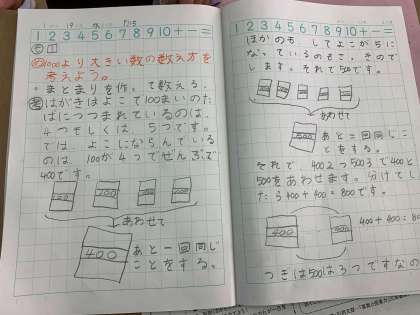 19 水
1 2 3 4 5 6 7 8 9 10 + - =
1000より大きい数の数え方を
考えよう。
・まとまりを作って数える。
はがきはよこで100まいのた
ばにつつまれているのは、
4つもしくは、5つです。
では、よこにならんでいる
のは、100が4つでぜんぶで
400です。
100 100
あわせて
400
あと一回同じ
ことをする。
1 2 3 4 5 6 7 8 9 10 + - =
ほかのも してよこがらに
なっているのもさ、きので
します。それで500です。
あわせて
500
あと一回同じこ
とをする。
それで、400 2つ500 3で400と
500をあわせます。分けてし
たら400+400=800です。
400 400
400+400=80
つぎは500は3つですなの